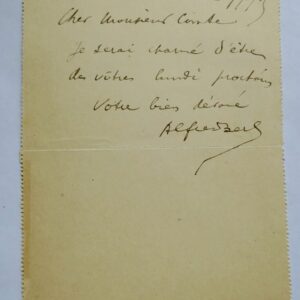 Cher Monsieur
je serai charmé d'être
des vôtres lundi prochain
Votre bien dévoué